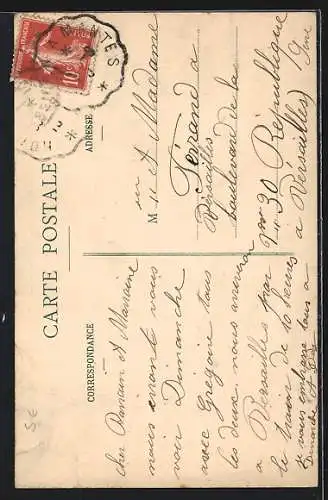 CARTE POSTALE
CORRESPONDANCE
ADRESSE
NANTES
10
cher Parrain et Marraine
nous iront vous
voir Dimanche
avec Grégoire tous
les deux nous arriveron
a Versailles par
le train de 10 heures
je vous embrasse tous a
Dimanche
M et Madame
Ferrand a
Versailles
boulevard de la
N° 30 République
a Versailles
S et Oise
5E